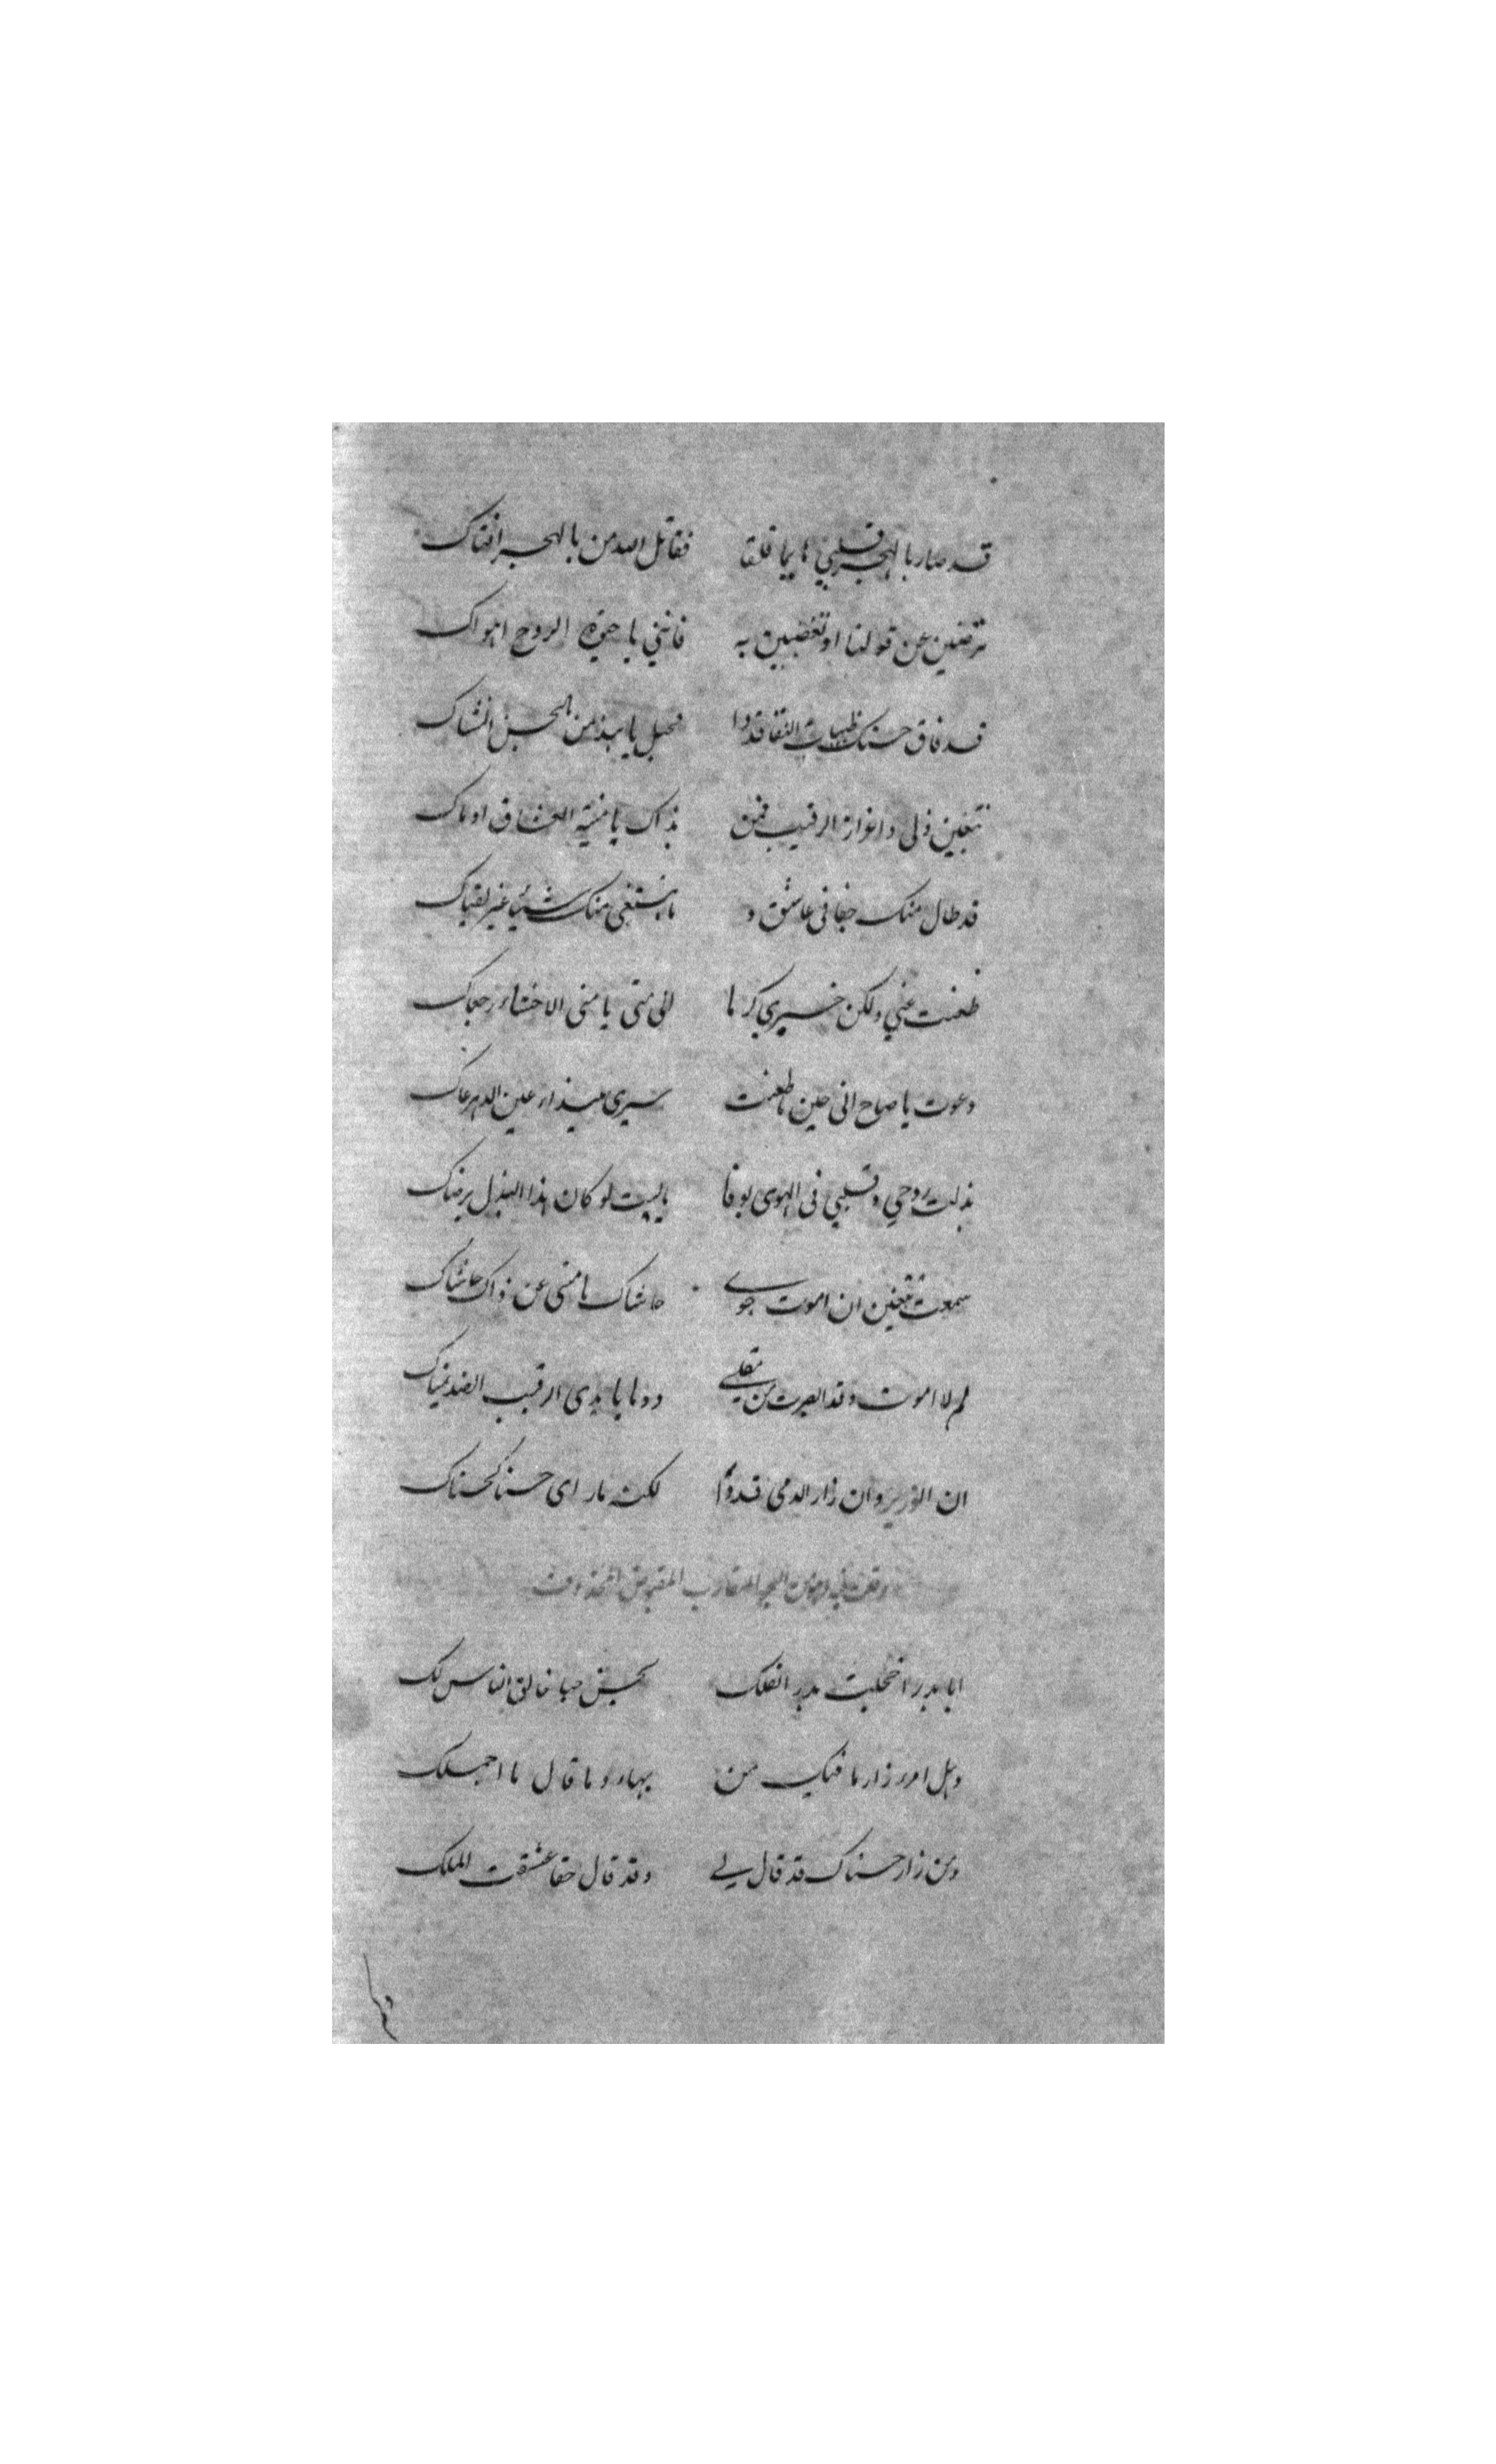 قد صار بالهجر قلبي هايما قلقا فقاتل الله من بالهجر افتاك
ترضين عن قولنا او تغضبين به فانني يا حيوة الروح اهواك
قد فاق حسنك ظبيات النقا قدوا فجل يا هند من بالحسن انشاك
تبغين ذلي واغزاز الرقيب فمن بذاك يا منية العشاق اوماك
قد طال منك جفا في عاشق و ما يبتغي منك شيئا غير لقياك
ظعنت عني ولكن خبري كرما اني متى يا منى الاحشاء رجعاك
دعوت يا صاح اني حين ما ظعنت سيري عين الله ترعاك
بذلت روحي وقلبي في الهوى بوفا ياليت لو كان هذا البذل يرضاك
سمعت تبغين ان اموت جوى حاشاك يا منى عن ذاك حاشاك
لم لا اموت وقد ابصرت من مقلي يدي الرقيب الضد يمناك
ان الوزير وان زار الدمى قدوا لكنه ما رای حسنا كحسناك
المتقارب المقبوض المحذوف
ايا بدر اخجلت بدر الفلك بحسن حبا خالق الناس لك
وهل امرء زار ما فيك من بهاء وما قال ما اجملك
ومن زار حسناك قد قال لي وقد قال حقا عشقت الملك